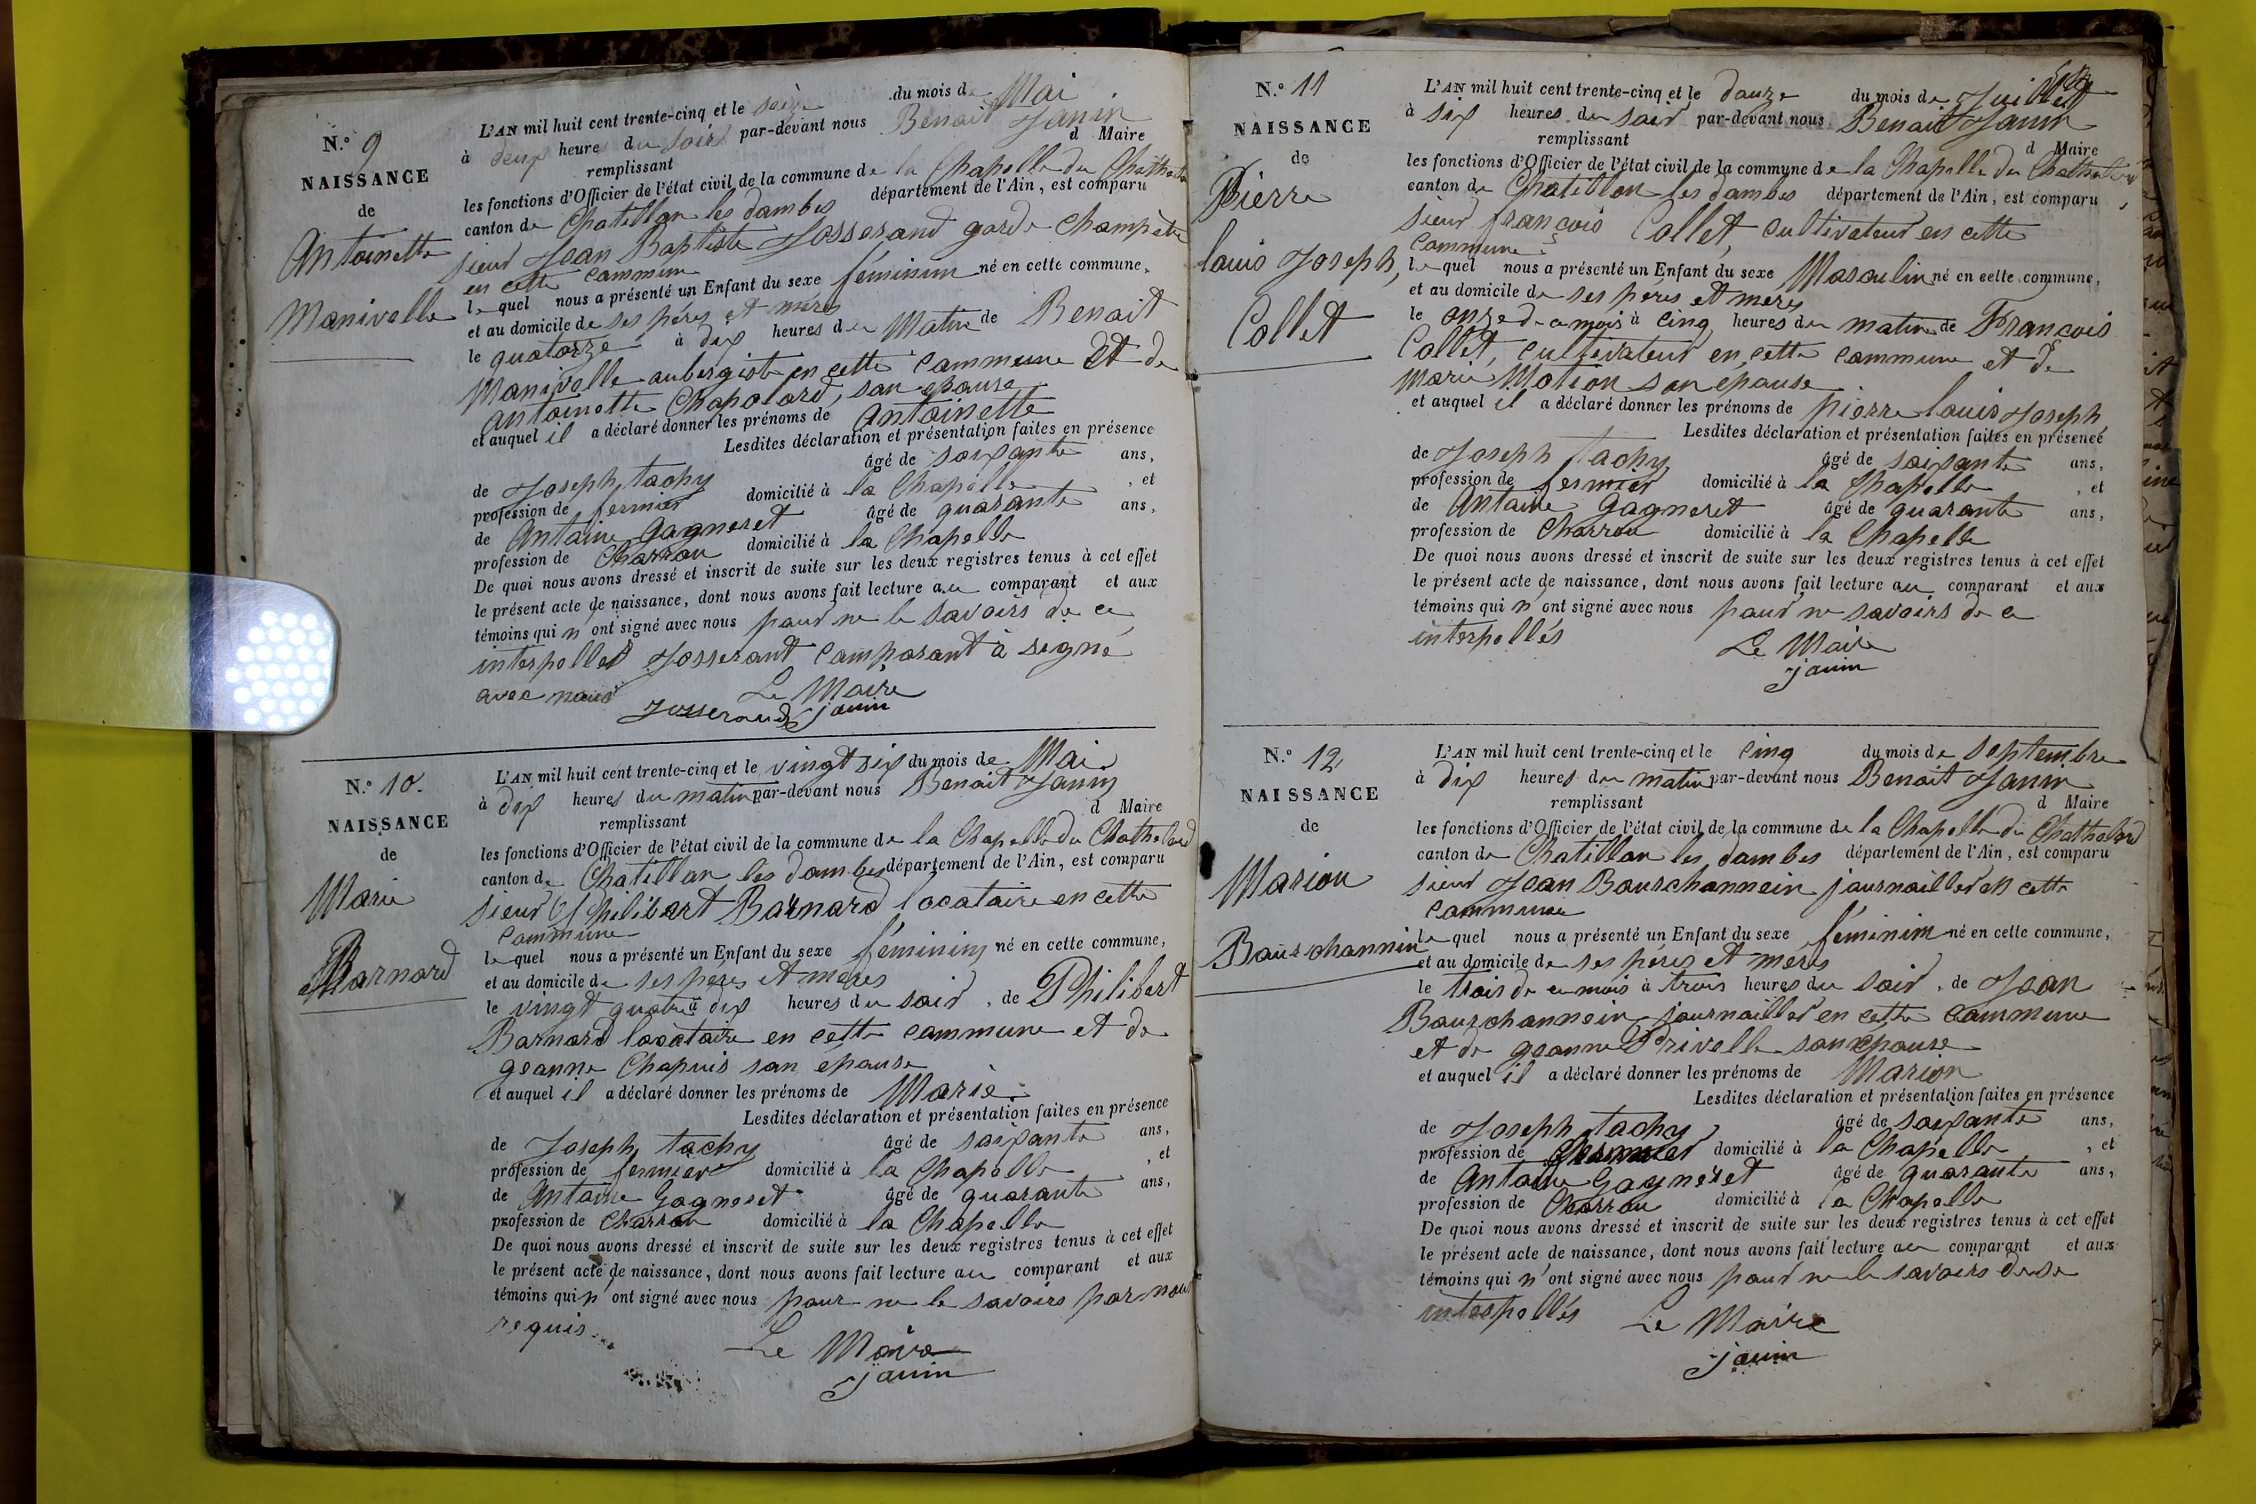 N.° 9
NAISSANCE
de
Antoinette
Manivelle
L'AN mil huit cent trente-cinq et le seize du mois de Mai
à deux heures du soir par-devant nous Benoit Janin
remplissant d Maire
les fonctions d'Officier de l'état civil de la commune de la Chapelle du Chathelard
canton de Chatillon les dombes département de l'Ain, est comparu
sieur Jean Baptiste Josserand garde champètre
en cette commune
lequel nous a présenté un Enfant du sexe féminin né en cette commune,
et au domicile de ses péres et méres
le quatorze à dix heures du Matin de Benoit
Manivelle aubergiste en cette commune Et de
antoinette Chapolard, son epouse
et auquel il a déclaré donner les prénoms de antoinette
Lesdites déclaration et présentation faites en présence
de Joseph tachy âgé de soixante ans,
profession de fermier domicilié à la Chapelle, et
de Antoine Gagneret âgé de quarante ans,
profession de Charron domicilié à la Chapelle
De quoi nous avons dressé et inscrit de suite sur les deux registres tenus à cet effet
le présent acte de naissance, dont nous avons fait lecture au comparant et aux
témoins qui n'ont signé avec nous pour ne le savoirs de ce
interpelles Josserant comparant à signé
avec nous
Le Maire
Josserand janin
N.° 10.
NAISSANCE
de
Marie
Barnard
L'AN mil huit cent trente-cinq et le vingt six du mois de Mai
à dix heures du matin par-devant nous Benoit Janin
remplissant d Maire
les fonctions d'Officier de l'état civil de la commune de la Chapelle du Chathelard
canton de Chatillon les dombes département de l'Ain, est comparu
sieur Philibert Barnard locataire en cette
commune
lequel nous a présenté un Enfant du sexe féminin né en cette commune,
et au domicile de ses peres et meres
le vingt quatre à dix heures du soir, de Philibert
Barnard locataire en cette commune et de
geanne Chapuis son épouse
et auquel il a déclaré donner les prénoms de Marie.
Lesdites déclaration et présentation faites en présence
de Joseph tachy âgé de soixante ans,
profession de fermier domicilié à la Chapelle, et
de Antoine Gagneret âgé de quarante ans,
profession de Charron domicilié à la Chapelle
De quoi nous avons dressé et inscrit de suite sur les deux registres tenus à cet effet
le présent acte de naissance, dont nous avons fait lecture au comparant et aux
témoins qui n'ont signé avec nous pour ne le savoirs par nous
requis
Le Maire
janin
N.° 11
NAISSANCE
de
Pierre
louis Joseph,
Collet
L'AN mil huit cent trente-cinq et le douze du mois de Juillet
à six heures du soir par-devant nous Benoit Janin
remplissant d Maire
les fonctions d'Officier de l'état civil de la commune de la Chapelle du Chathelard
canton de Chatillon les dombes département de l'Ain, est comparu,
sieur françois Collet, cultivateur en cette
commune
lequel nous a présenté un Enfant du sexe Masculin né en cette commune,
et au domicile de ses péres et mères
le onze de ce mois à cinq heures du matin de François
Collet, cultivateur en cette commune et de
marie Motion son épouse
et auquel il a déclaré donner les prénoms de pierre louis Joseph
Lesdites déclaration et présentation faites en présence
de Joseph Tachy âgé de soixante ans,
profession de fermier domicilié à la Chapelle, et
de Antoine Gagneret âgé de quarante ans,
profession de Charron domicilié à la Chapelle
De quoi nous avons dressé et inscrit de suite sur les deux registres tenus à cet effet
le présent acte de naissance, dont nous avons fait lecture au comparant et aux
témoins qui n'ont signé avec nous pour ne savoirs de ce
interpellés
Le Maire
janin
N.° 12
NAISSANCE
de
Marion
Bourchannin
L'AN mil huit cent trente-cinq et le cinq du mois de septembre
à dix heures du matin par-devant nous Benoit Janin
remplissant d Maire
les fonctions d'Officier de l'état civil de la commune de la Chapelle du Chathelard
canton de Chatillon les dombes département de l'Ain, est comparu
sieur Jean Bourchannein journailler en cette
commune
lequel nous a présenté un Enfant du sexe féminin né en cette commune,
et au domicile de ses péres et mères
le trois de ce mois à trois heures du soir, de Jean
Bourchannein journailler en cette commune
et de geanne Privelle son epouse
et auquel il a déclaré donner les prénoms de Marion
Lesdites déclaration et présentation faites en présence
de Joseph tachy âgé de soixante ans,
profession de fermier domicilié à la Chapelle, et
de Antoine Gagneret âgé de quarante ans,
profession de Charron domicilié à la Chapelle
De quoi nous avons dressé et inscrit de suite sur les deux registres tenus à cet effet
le présent acte de naissance, dont nous avons fait lecture au comparant et aux
témoins qui n'ont signé avec nous pour ne le savoirs de se
interpellés
Le Maire
janin